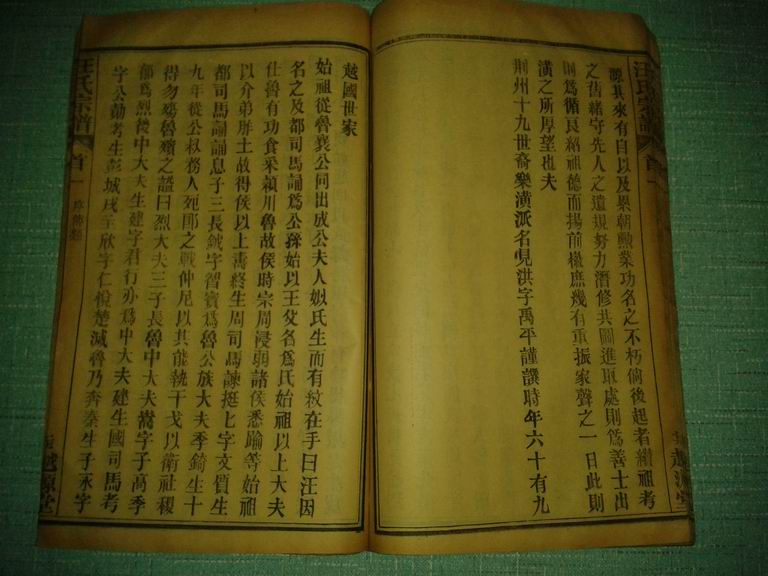 汪氏宗譜
首一
源其來有自以及累朝勲業功名之不朽倘後起者纘祖考
之舊緒守先人之遺規努力潛修共圖進取處則爲善士出
則爲循良紹祖德而揚前徽庶幾有重振家聲之一日此則
潢之所厚望也夫
荆州十九世裔樂潢派名見洪字禹平謹譔時年六十有九
越源堂
越國世家
始祖從魯襄公同出成公夫人姒氏生而有紋在手曰汪因
名之及都司馬誦爲公孫始以王父名爲氏始祖以上大夫
仕魯有功食釆潁川魯故侯時宗周浸弱諸侯悉踰等始祖
以介弟胙土故得侯以上壽終生周司馬諫挺七字文質生
都司馬誦誦息子三長鉞字習賓爲魯公族大夫季錡生十
九年從公叔務人死郎之戰仲尼以其能執干戈以衛社稷
得勿殤魯殯之諡曰烈大夫三子長魯中大夫嵩字子高季
爲烈後中大夫生建字君行亦爲中大夫建生國司馬考
字公勤考生彭城戌主欣字仁悅楚滅魯乃奔秦生子永字
汪氏宗譜
首一
越源堂